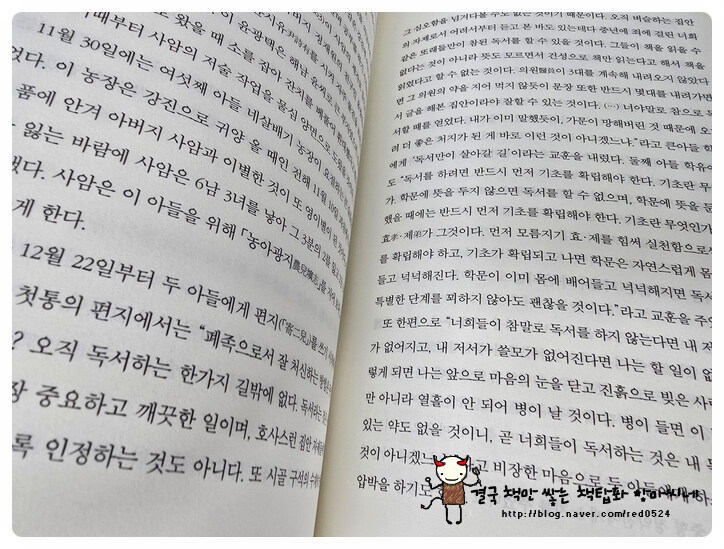 11월 30일에는 여섯째 아들 네살배기 농장이 요절
었다. 이 농장은 강진으로 귀양 올 때인 전해 11월
품에 안겨 아버지 사암과 이별한 것이 또 영이별이 된
잃는 바람에 사암은 6남 3녀를 낳아 그 3분의 2를 잃고
했다. 사암은 이 아들을 위해 「농아광지
게 한다.
12월 22일부터 두 아들에게 편지
첫통의 편지에서는 “폐족으로서 잘 처신하는
? 오직 독서하는 한가지 길밖에 없다. 독서라는
장 중요하고 깨끗한 일이며, 호사스런 집안
록 인정하는 것도 아니다. 또 시골 구석의 수재
그 심오함을 넘겨다볼 수도 없는 것이기 때문이다. 오직 벼슬하는 집안
의 자제로서 어려서부터 듣고 본 바도 있는데다 중년에 죄에 걸린 너희
같은 또래들만이 참된 독서를 할 수 있을 것이다. 그들이 책을 읽을 수
없다는 것이 아니라 뜻도 모르면서 건성으로 책만 읽는다고 해서 책을
읽었다고 할 수는 없는 것이다. 의원醫員이 3대를 계속해 내려오지 않았다
면 그 의원의 약을 지어 먹지 않듯이 문장 또한 반드시 몇대를 내려가면
서 글을 해본 집안이라야 잘할 수 있는 것이다. (…) 너야말로 참으로 독
서할 때를 얻었다. 내가 이미 말했듯이, 가문이 망해버린 것 때문에 오
려 더 좋은 처지가 된 게 바로 이런 것이 아니겠느냐.”라고 큰아들 학
에게 ‘독서만이 살아갈 길’이라는 교훈을 내렸다. 둘째 아들 학유에
도 “독서를 하려면 반드시 먼저 기초를 확립해야 한다. 기초란 무
가. 학문에 뜻을 두지 않으면 독서를 할 수 없으며, 학문에 뜻을 둔
했을 때에는 반드시 먼저 기초를 확립해야 한다. 기초란 무엇인가
효孝·제弟가 그것이다. 먼저 모름지기 효·제를 힘써 실천함으로써
를 확립해야 하고, 기초가 확립되고 나면 학문은 자연스럽게 몸
들고 넉넉해진다. 학문이 이미 몸에 배어들고 넉넉해지면 독서
특별한 단계를 꾀하지 않아도 괜찮을 것이다.”라고 교훈을 주었
또 한편으로 “너희들이 참말로 독서를 하지 않는다면 내 저
가 없어지고, 내 저서가 쓸모가 없어진다면 나는 할 일이 없
렇게 되면 나는 앞으로 마음의 눈을 닫고 진흙으로 빚은 사람
만 아니라 열흘이 안 되어 병이 날 것이다. 병이 들면 이
있는 약도 없을 것이니, 곧 너희들이 독서하는 것은 내 목
것이 아니겠느냐 고 비장한 마음으로 두 아들에게
압박을 하기도
결국 책만 쌓는 책탑화 항마씨네
http://blog.naver.com/red0524